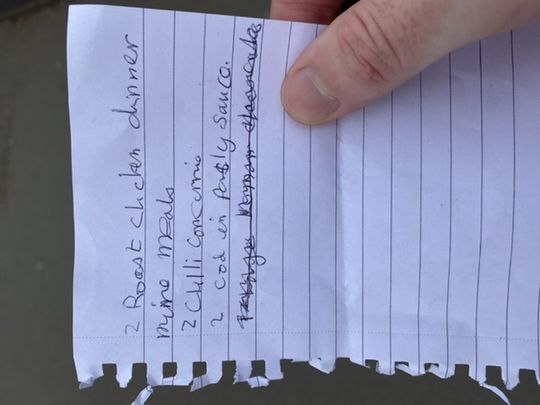 2 Roast chicken dinner
mine meals
2 Chilli concarnie
2 cod in parsly sauce.